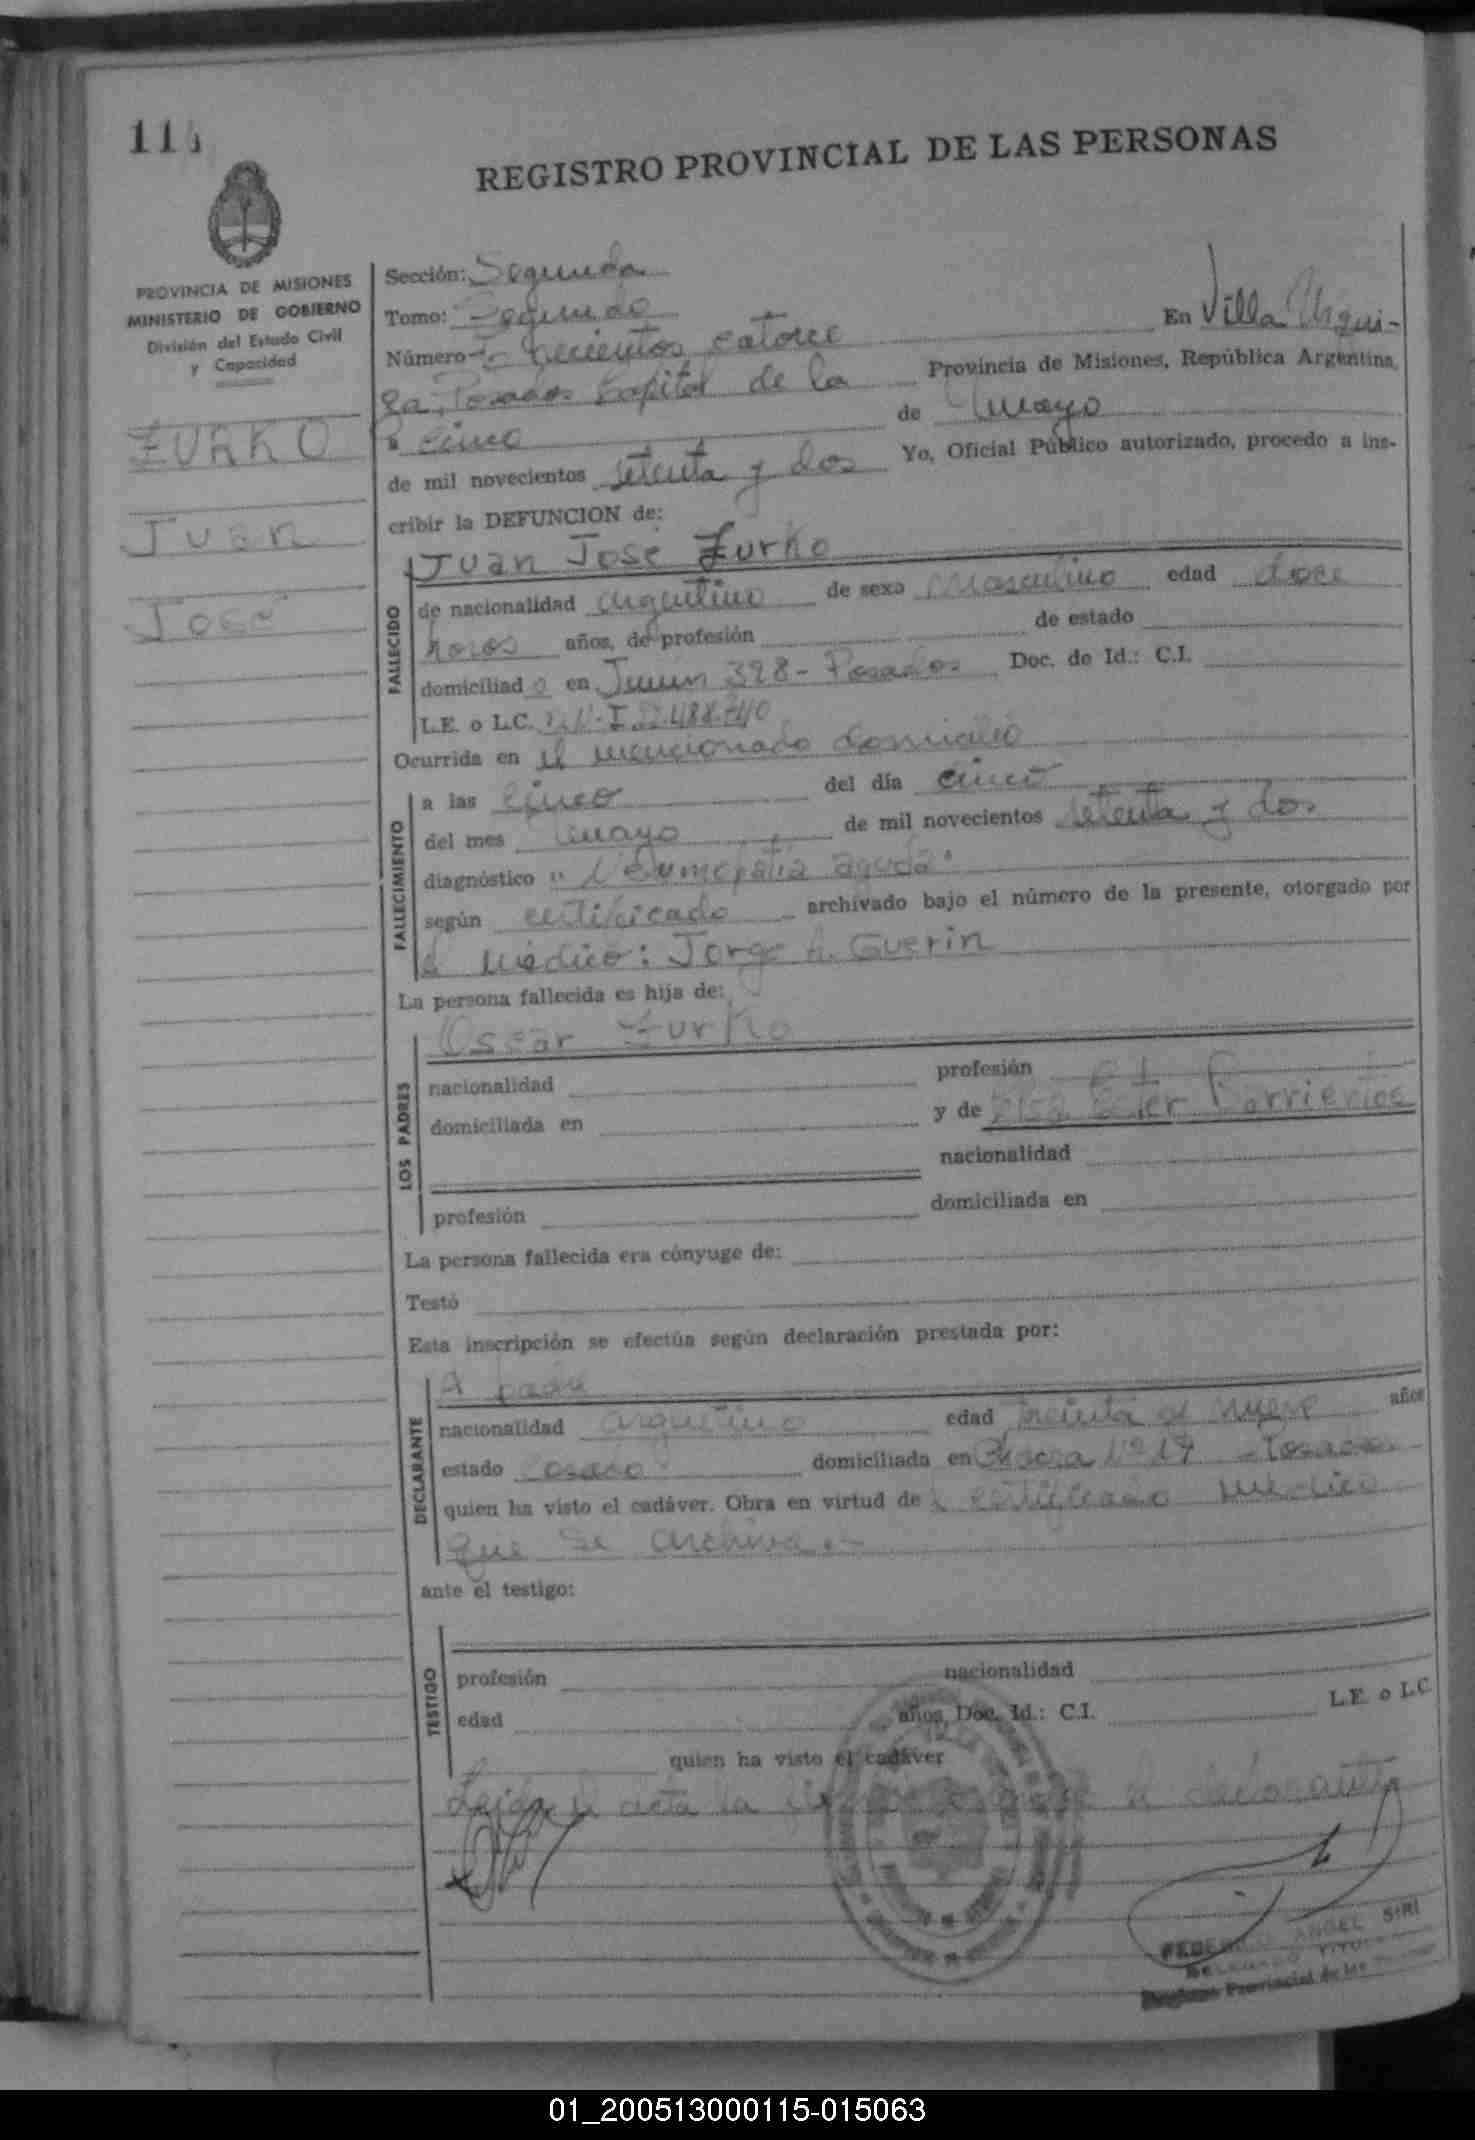 REGISTRO PROVINCIAL DE LAS PERSONAS
PROVINCIA DE MISIONES
MINISTERIO DE GOBIERNO
División del Estado Civil
y Capacidad
ZURKO
Juan
José
Sección: Segunda
Tomo: Segundo
Número Trecientos catorce En Villa Urqui-
za, Posadas Capital de la Provincia de Misiones, República Argentina,
a cinco de mayo
de mil novecientos setenta y dos Yo, Oficial Público autorizado, procedo a ins-
cribir la DEFUNCION de:
FALLECIDO
Juan José Zurko
de nacionalidad argentino de sexo masculino edad doce
horas años, de profesión de estado
domiciliado en Junín 328 - Posadas Doc. de Id.: C.I.
L.E. o L.C.
Ocurrida en el mencionado domicilio
FALLECIMIENTO
a las cinco del día cinco
del mes mayo de mil novecientos setenta y dos
diagnóstico "Neumopatia aguda"
según certificado archivado bajo el número de la presente, otorgado por
el médico: Jorge A. Guerin
La persona fallecida es hija de:
LOS PADRES
Oscar Zurko
nacionalidad profesión
domiciliada en y de Elsa Ester Barrientos
nacionalidad
profesión domiciliada en
La persona fallecida era cónyuge de:
Testó
Esta inscripción se efectúa según declaración prestada por:
DECLARANTE
padre
nacionalidad argentino edad treinta y nueve años
estado casado domiciliada en Chacra Nº 19 - Posadas
quien ha visto el cadáver. Obra en virtud de certificado médico
que se archiva.-
ante el testigo:
TESTIGO
profesión nacionalidad
edad años, Doc. Id.: C.I. L.E. o L.C.
quien ha visto el cadáver
Leída el acta la el declarante
FEDERICO ANGEL SIRI
DELEGADO TITULAR
Registro Provincial de las Personas
01_200513000115-015063